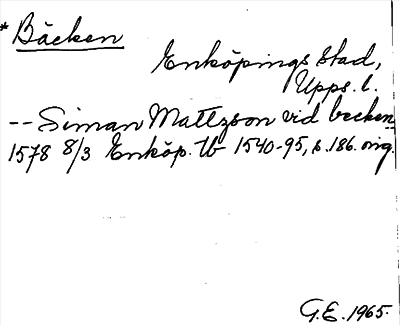 * Bäcken
Enköpings stad,
Upps. l.
-- Siman Mattzson vid becken
1578 8/3 Enköp. tb 1540-95, s. 186. orig.
G.E. 1965.